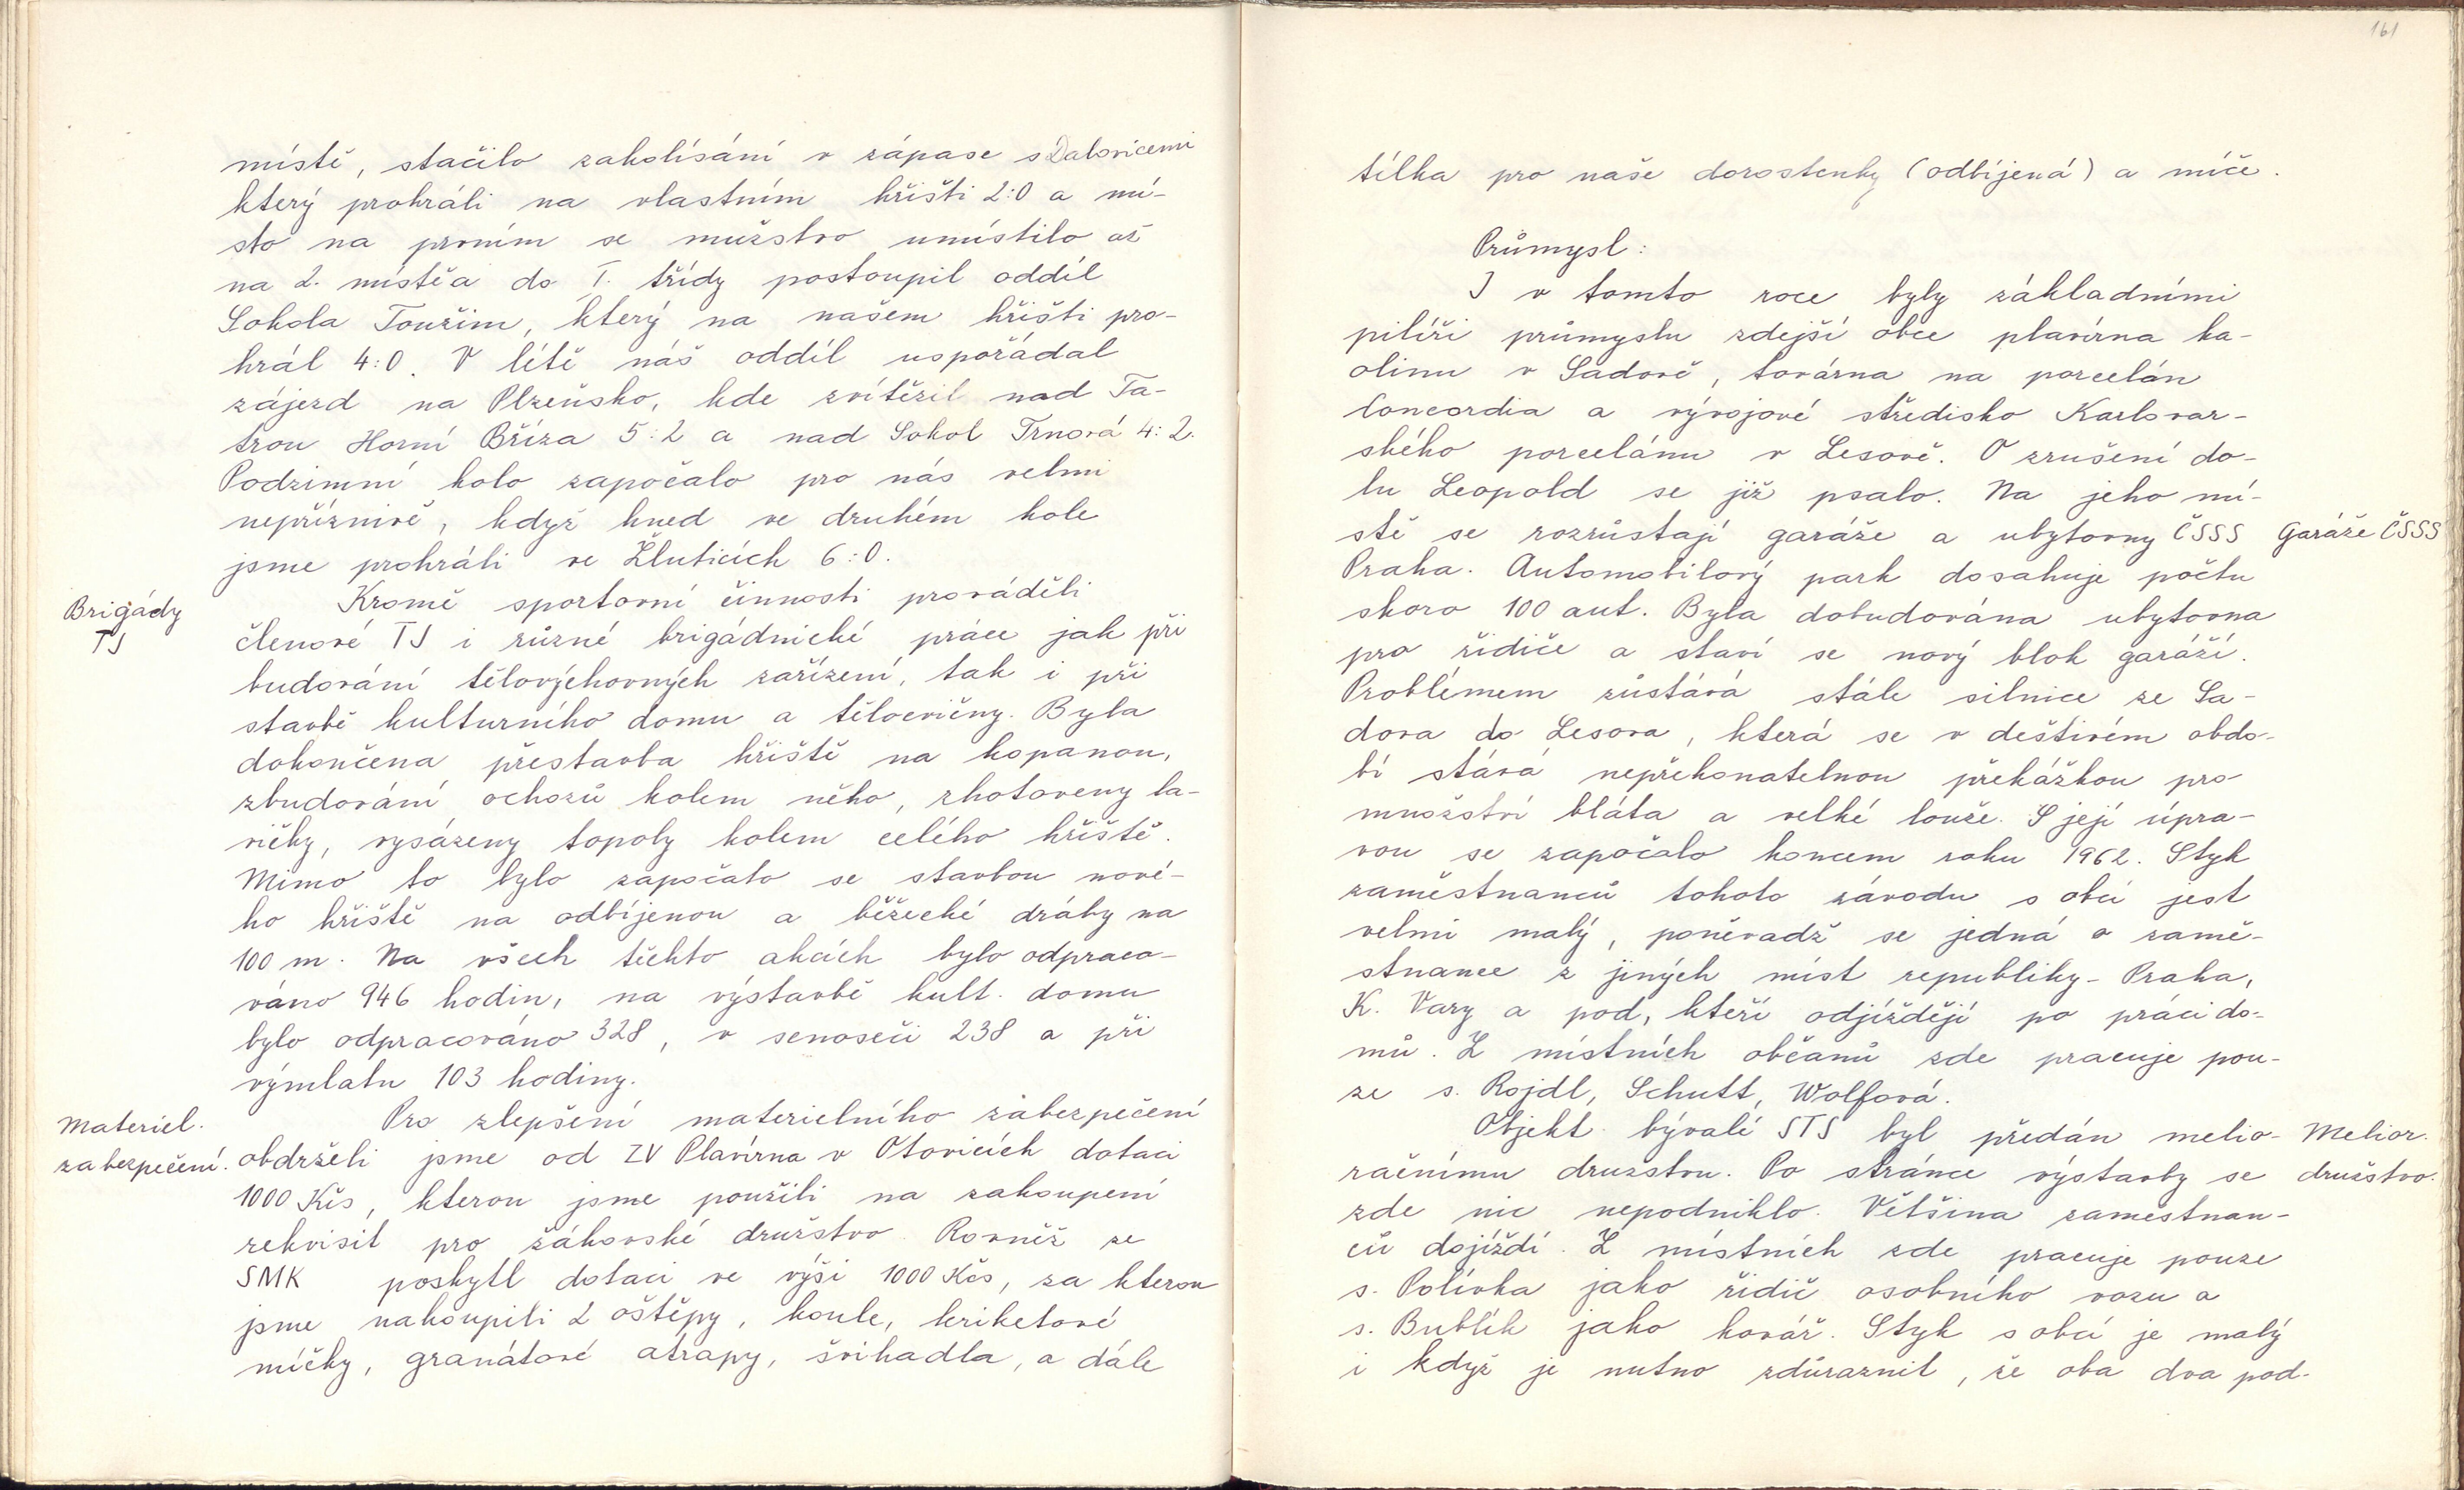 místě, stačilo zakolísání v zápase s Dalovicemi
který prohráli na vlastním hřišti 2:0 a mí-
sto na prvním se mužstvo umístilo až
na 2. místě a do I. třídy postoupil oddíl
Sokola Toužim, který na našem hřišti pro-
hrál 4:0. V létě náš oddíl uspořádal
zájezd na Plzeňsko, kde zvítězil nad Ta-
trou Horní Bříza 5:2 a nad Sokol Trnová 4:2.
Podzimní kolo započalo pro nás velmi
nepříznivě, když hned ve druhém kole
jsme prohráli ve Žluticích 6:0.
Brigády
TJ
Kromě sportovní činnosti prováděli
členové TJ i různé brigádnické práce jak při
budování tělovýchovných zařízení, tak i při
stavbě kulturního domu a tělocvičny. Byla
dokončena přestavba hřiště na kopanou,
zbudování ochozů kolem něho, zhotoveny la-
vičky, vysázeny topoly kolem celého hřiště.
Mimo to bylo započato se stavbou nové-
ho hřiště na odbíjenou a běžecké dráhy na
100 m. Na všech těchto akcích bylo odpraco-
váno 946 hodin, na výstavbě kult. domu
bylo odpracováno 328, v senoseči 238 a při
výmlatu 103 hodiny.
Materiel.
zabezpečení.
Pro zlepšení materielního zabezpečení
obdrželi jsme od ZV Plavírna v Otovicích dotaci
1000 Kčs, kterou jsme použili na zakoupení
rekvisit pro žákovské družstvo. Rovněž ze
SMK poskytl dotaci ve výši 1000 Kčs, za kterou
jsme nakoupili 2 oštěpy, koule, kriketové
míčky, granátové atrapy, švihadla, a dále
161
tílka pro naše dorostenky (odbíjená) a míče.
Průmysl:
I v tomto roce byly základními
pilíři průmyslu zdejší obce plavírna ka-
olinu v Sadově, továrna na porcelán
Concordia a vývojové středisko Karlovar-
ského porcelánu v Lesově. O zrušení do-
lu Leopold se již psalo. Na jeho mí-
stě se rozrůstají garáže a ubytovny ČSSS
Garáže ČSSS
Praha. Automobilový park dosahuje počtu
skoro 100 aut. Byla dobudována ubytovna
pro řidiče a staví se nový blok garáží.
Problémem zůstává stále silnice ze Sa-
dova do Lesova, která se v deštivém obdo-
bí stává nepřekonatelnou překážkou pro
množství bláta a velké louže. S její úpra-
vou se započalo koncem roku 1962. Styk
zaměstnanců tohoto závodu s obcí jest
velmi malý, poněvadž se jedná o zamě-
stnance z jiných míst republiky - Praha,
K. Vary a pod, kteří odjíždějí po práci do-
mů. Z místních občanů zde pracuje pou-
ze s. Rojdl, Schutt, Wolfová.
Objekt bývalé STS byl předán melio-
Melior.
družstvo.
račnímu družstvu. Po stránce výstavby se
zde nic nepodniklo. Většina zamestnan-
ců dojíždí. Z místních zde pracuje pouze
s. Polívka jako řidič osobního vozu a
s. Bublík jako kovář. Styk s obcí je malý
i když je nutno zdůraznit, že oba dva pod-